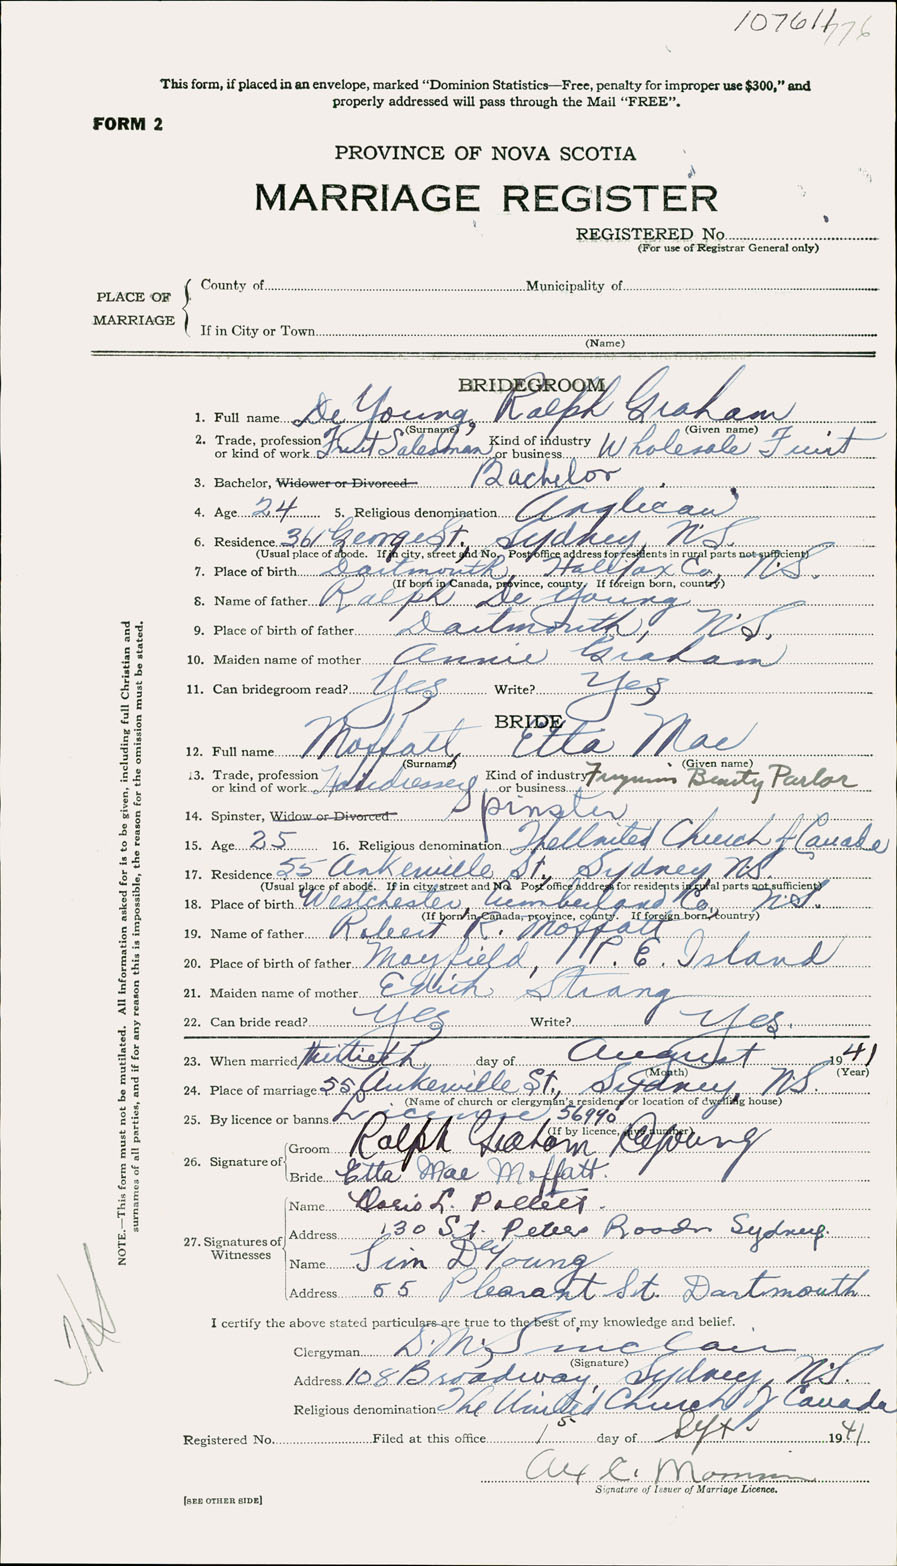 10761
776
This form, if placed in an envelope, marked "Dominion Statistics—Free, penalty for improper use $300," and
properly addressed will pass through the Mail "FREE".
FORM 2
PROVINCE OF NOVA SCOTIA
MARRIAGE REGISTER
REGISTERED No.
(For use of Registrar General only)
PLACE OF MARRIAGE
County of Municipality of
If in City or Town
(Name)
BRIDEGROOM
1. Full name De Young, Ralph Graham
(Surname) (Given name)
2. Trade, profession or kind of work Fruit Salesman Kind of industry or business Wholesale Fruit
3. Bachelor, Widower or Divorced Bachelor
4. Age 24 5. Religious denomination Anglican
6. Residence 361 George St. Sydney, N.S.
(Usual place of abode. If in city, street and No. Post office address for residents in rural parts not sufficient)
7. Place of birth Dartmouth, Halifax Co., N.S.
(If born in Canada, province, county. If foreign born, country)
8. Name of father Ralph De Young
9. Place of birth of father Dartmouth, N.S.
10. Maiden name of mother Annie Graham
11. Can bridegroom read? Yes Write? Yes
BRIDE
12. Full name Moffatt, Etta Mae
(Surname) (Given name)
13. Trade, profession or kind of work Hairdresser Kind of industry or business Beauty Parlor
14. Spinster, Widow or Divorced Spinster
15. Age 25 16. Religious denomination The United Church of Canada
17. Residence 55 Ankerville St., Sydney N.S.
(Usual place of abode. If in city, street and No. Post office address for residents in rural parts not sufficient)
18. Place of birth Westchester, Cumberland Co., N.S.
(If born in Canada, province, county. If foreign born, country)
19. Name of father Robert R. Moffatt
20. Place of birth of father Mayfield, P.E. Island
21. Maiden name of mother Edith Strang
22. Can bride read? Yes Write? Yes.
23. When married thirtieth day of August 1941
(Month) (Year)
24. Place of marriage 55 Ankerville St., Sydney, N.S.
(Name of church or clergyman's residence or location of dwelling house)
25. By licence or banns Licence 56990
(If by licence, give number)
26. Signature of
Groom Ralph Graham DeYoung
Bride Etta Mae Moffatt.
27. Signatures of Witnesses
Name Doris L. Pollett.
Address 130 St. Peters Road Sydney.
Name Jim DeYoung
Address 55 Pleasant St. Dartmouth
I certify the above stated particulars are true to the best of my knowledge and belief.
Clergyman D. M. Sinclair
(Signature)
Address 108 Broadway, Sydney, N.S.
Religious denomination The United Church of Canada
Registered No. Filed at this office 1st day of Sept. 1941
Signature of Issuer of Marriage Licence.
[SEE OTHER SIDE]
NOTE.—This form must not be mutilated. All information asked for is to be given, including full Christian and
surnames of all parties, and if for any reason this is impossible, the reason for the omission must be stated.